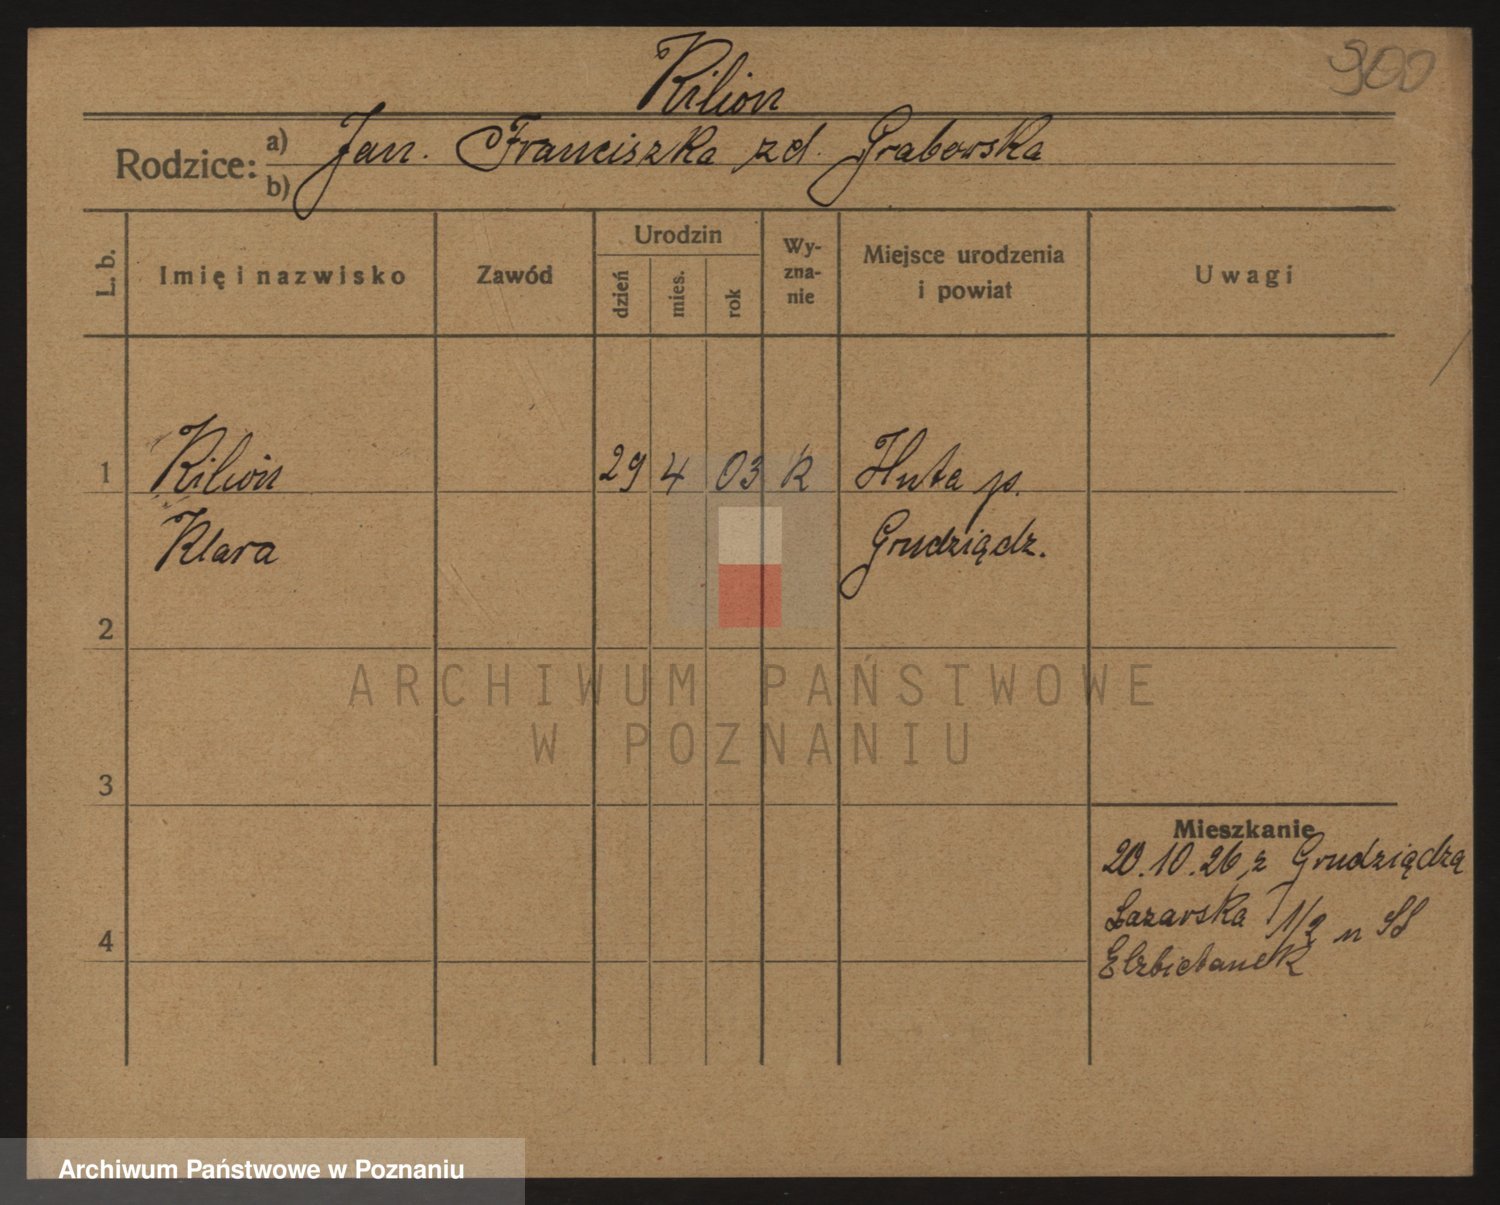 Kilion
900
Rodzice: a) Jan. Franciszka zd. Grabowska
b)
L. b. Imię i nazwisko Zawód Urodzin dzień mies. rok Wy-zna-nie Miejsce urodzenia i powiat Uwagi
1 Kilion 29 4 03 k Huta p.
Klara Grudziądz.
2
ARCHIWUM PAŃSTWOWE
W POZNANIU
3
Mieszkanie
20.10.26, z Grudziądza
Łazarska 1/2 u SS
4
Elżbietanek
Archiwum Państwowe w Poznaniu